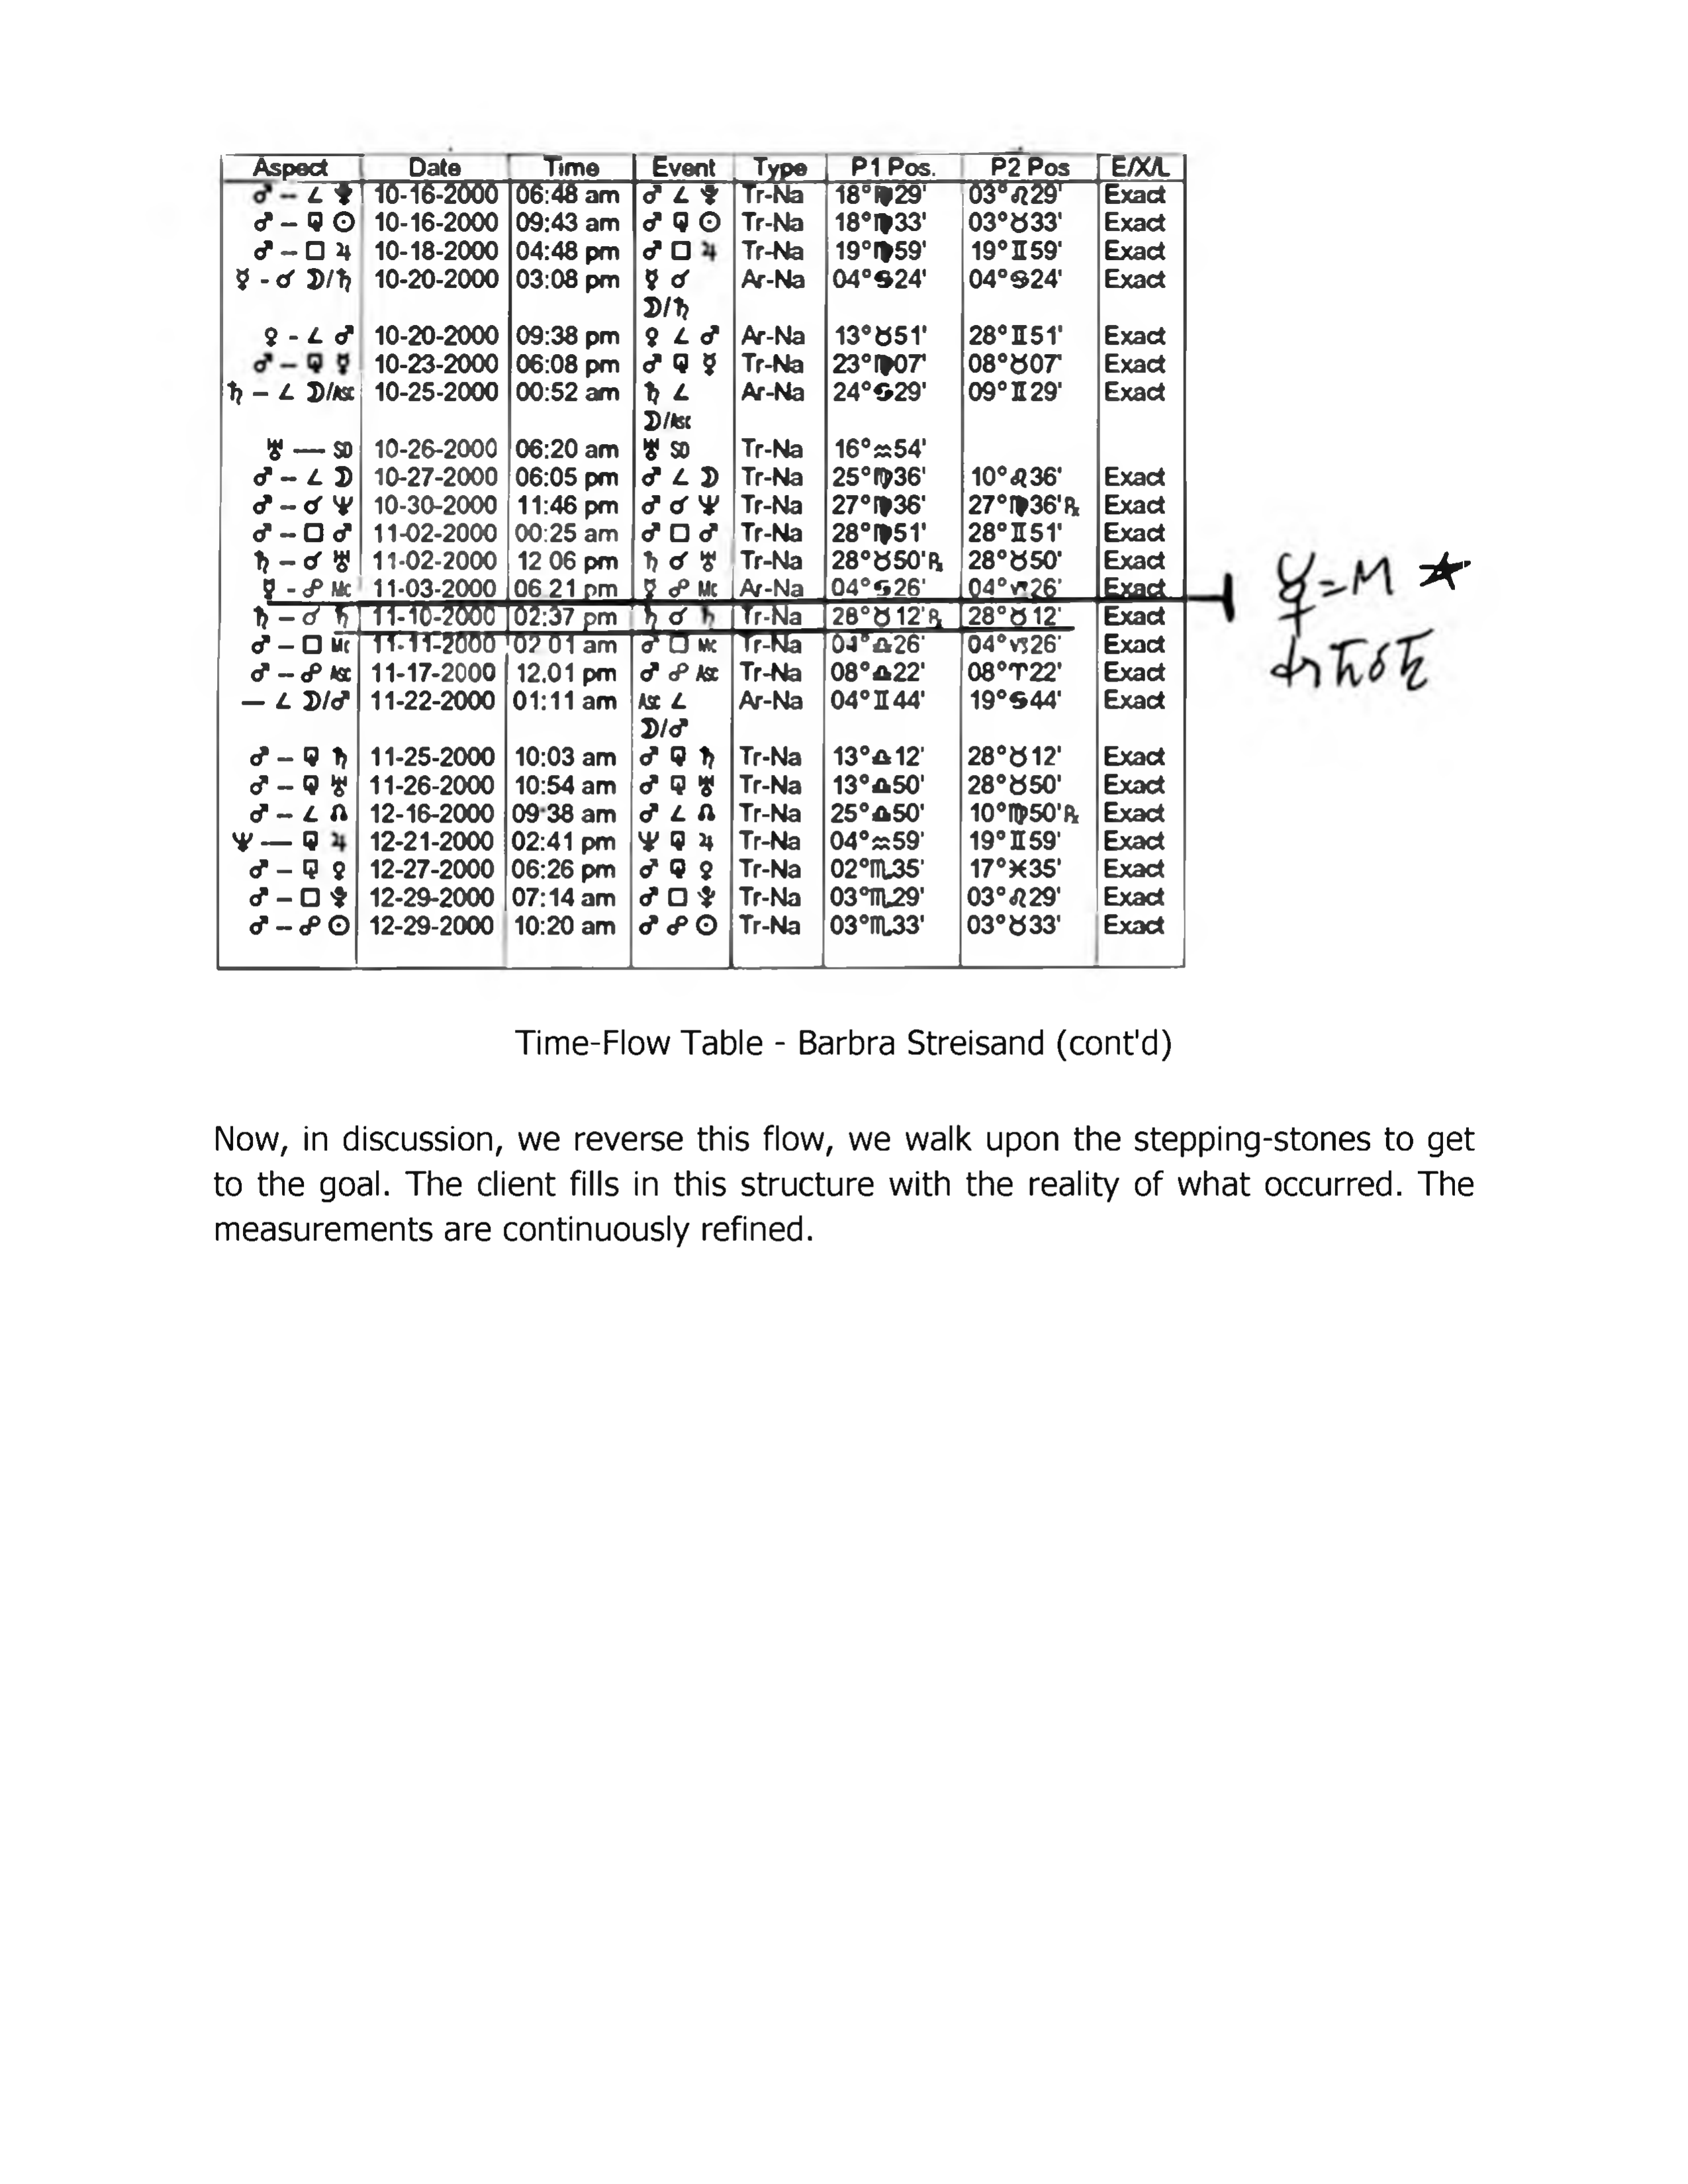 Aspect Date Time Event Type P1 Pos. P2 Pos E/X/L
♂ -- ∠ ♇ 10-16-2000 06:48 am ♂ ∠ ♇ Tr-Na 18°♍29' 03°♌29' Exact
♂ -- ⚼ ☉ 10-16-2000 09:43 am ♂ ⚼ ☉ Tr-Na 18°♍33' 03°♉33' Exact
♂ -- □ ♃ 10-18-2000 04:48 pm ♂ □ ♃ Tr-Na 19°♍59' 19°♊59' Exact
☿ - ☌ ☽/♄ 10-20-2000 03:08 pm ☿ ☌ Ar-Na 04°♋24' 04°♋24' Exact
☽/♄
♀ - ∠ ♂ 10-20-2000 09:38 pm ♀ ∠ ♂ Ar-Na 13°♉51' 28°♊51' Exact
♂ -- ⚼ ☿ 10-23-2000 06:08 pm ♂ ⚼ ☿ Tr-Na 23°♍07' 08°♉07' Exact
♄ -- ∠ ☽/Asc 10-25-2000 00:52 am ♄ ∠ Ar-Na 24°♋29' 09°♊29' Exact
☽/Asc
♅ --- SD 10-26-2000 06:20 am ♅ SD Tr-Na 16°♒54'
♂ -- ∠ ☽ 10-27-2000 06:05 pm ♂ ∠ ☽ Tr-Na 25°♍36' 10°♌36' Exact
♂ -- ☌ ♆ 10-30-2000 11:46 pm ♂ ☌ ♆ Tr-Na 27°♍36' 27°♍36'℞ Exact
♂ -- □ ♂ 11-02-2000 00:25 am ♂ □ ♂ Tr-Na 28°♍51' 28°♊51' Exact
♄ -- ☌ ♅ 11-02-2000 12 06 pm ♄ ☌ ♅ Tr-Na 28°♉50'℞ 28°♉50' Exact
☿ - ☍ Mc 11-03-2000 06 21 pm ☿ ☍ Mc Ar-Na 04°♋26' 04°♑26' Exact
☿=M ★
♄ -- ☌ ♄ 11-10-2000 02:37 pm ♄ ☌ ♄ Tr-Na 28°♉12'℞ 28°♉12' Exact
♄☌♄
♂ -- □ Mc 11-11-2000 02 01 am ♂ □ Mc Tr-Na 04°♎26' 04°♑26' Exact
♂ -- ☍ Asc 11-17-2000 12.01 pm ♂ ☍ Asc Tr-Na 08°♎22' 08°♈22' Exact
-- ∠ ☽/♂ 11-22-2000 01:11 am Asc ∠ Ar-Na 04°♊44' 19°♋44' Exact
☽/♂
♂ -- ⚼ ♄ 11-25-2000 10:03 am ♂ ⚼ ♄ Tr-Na 13°♎12' 28°♉12' Exact
♂ -- ⚼ ♅ 11-26-2000 10:54 am ♂ ⚼ ♅ Tr-Na 13°♎50' 28°♉50' Exact
♂ -- ∠ ☊ 12-16-2000 09:38 am ♂ ∠ ☊ Tr-Na 25°♎50' 10°♍50'℞ Exact
♆ --- ⚼ ♃ 12-21-2000 02:41 pm ♆ ⚼ ♃ Tr-Na 04°♒59' 19°♊59' Exact
♂ -- ⚼ ♀ 12-27-2000 06:26 pm ♂ ⚼ ♀ Tr-Na 02°♏35' 17°♓35' Exact
♂ -- □ ♇ 12-29-2000 07:14 am ♂ □ ♇ Tr-Na 03°♏29' 03°♌29' Exact
♂ -- ☍ ☉ 12-29-2000 10:20 am ♂ ☍ ☉ Tr-Na 03°♏33' 03°♉33' Exact
Time-Flow Table - Barbra Streisand (cont'd)
Now, in discussion, we reverse this flow, we walk upon the stepping-stones to get
to the goal. The client fills in this structure with the reality of what occurred. The
measurements are continuously refined.